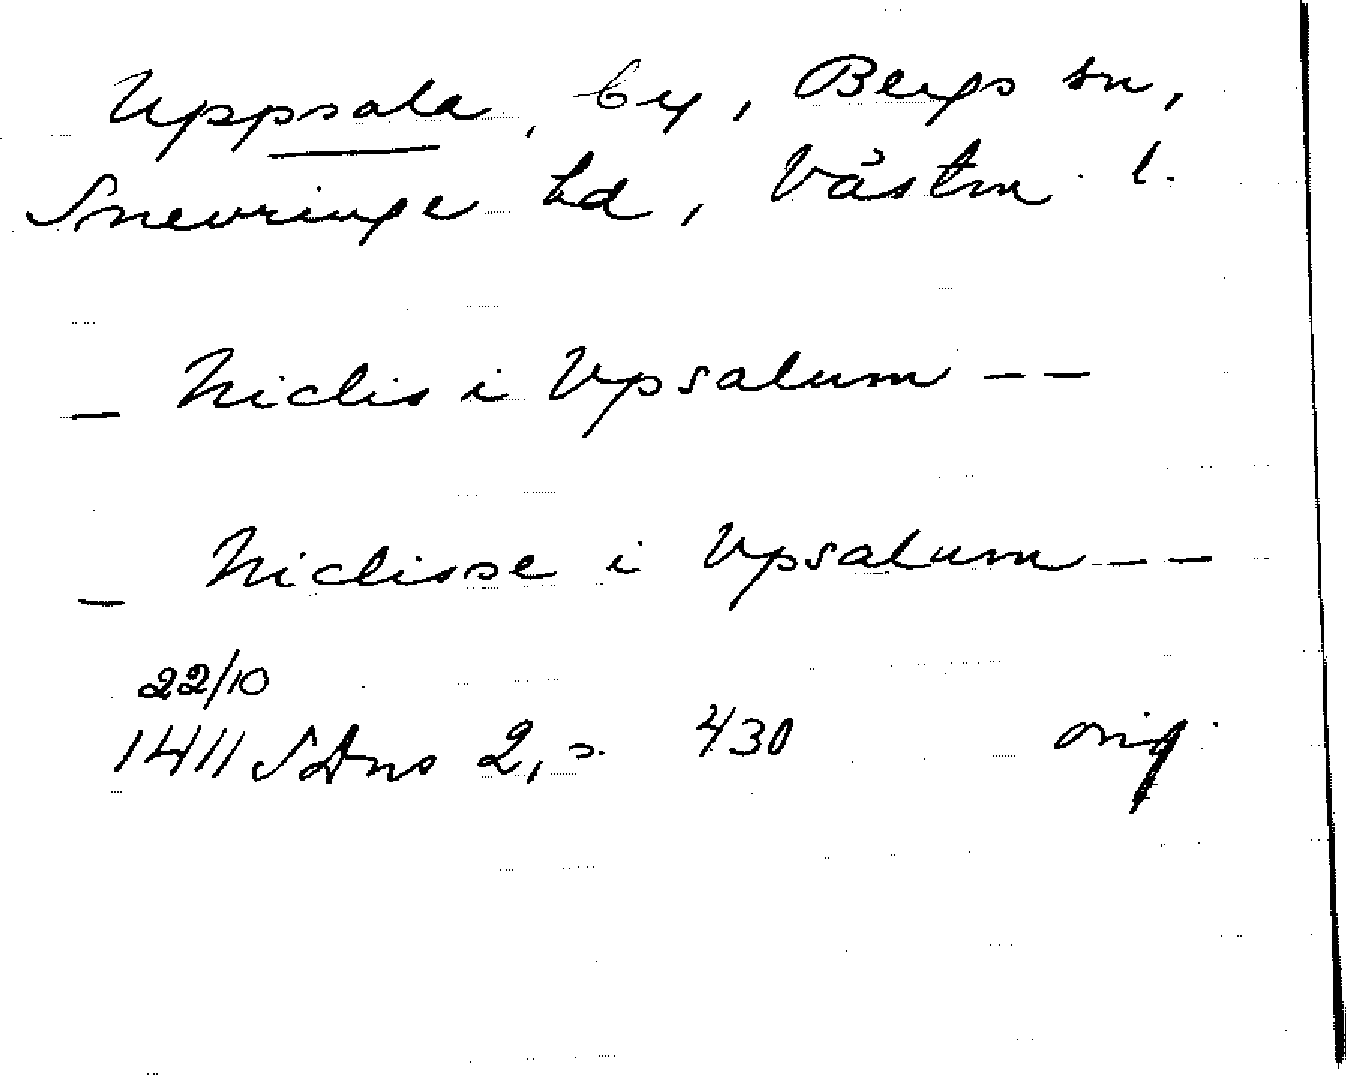 Uppsala, by, Bergs sn,
Snevringe hd, Västm. l.
– Niclis i Vpsalum – –
– Niclisse i Vpsalum – –
22/10
1411 SDns 2, s. 430 orig.